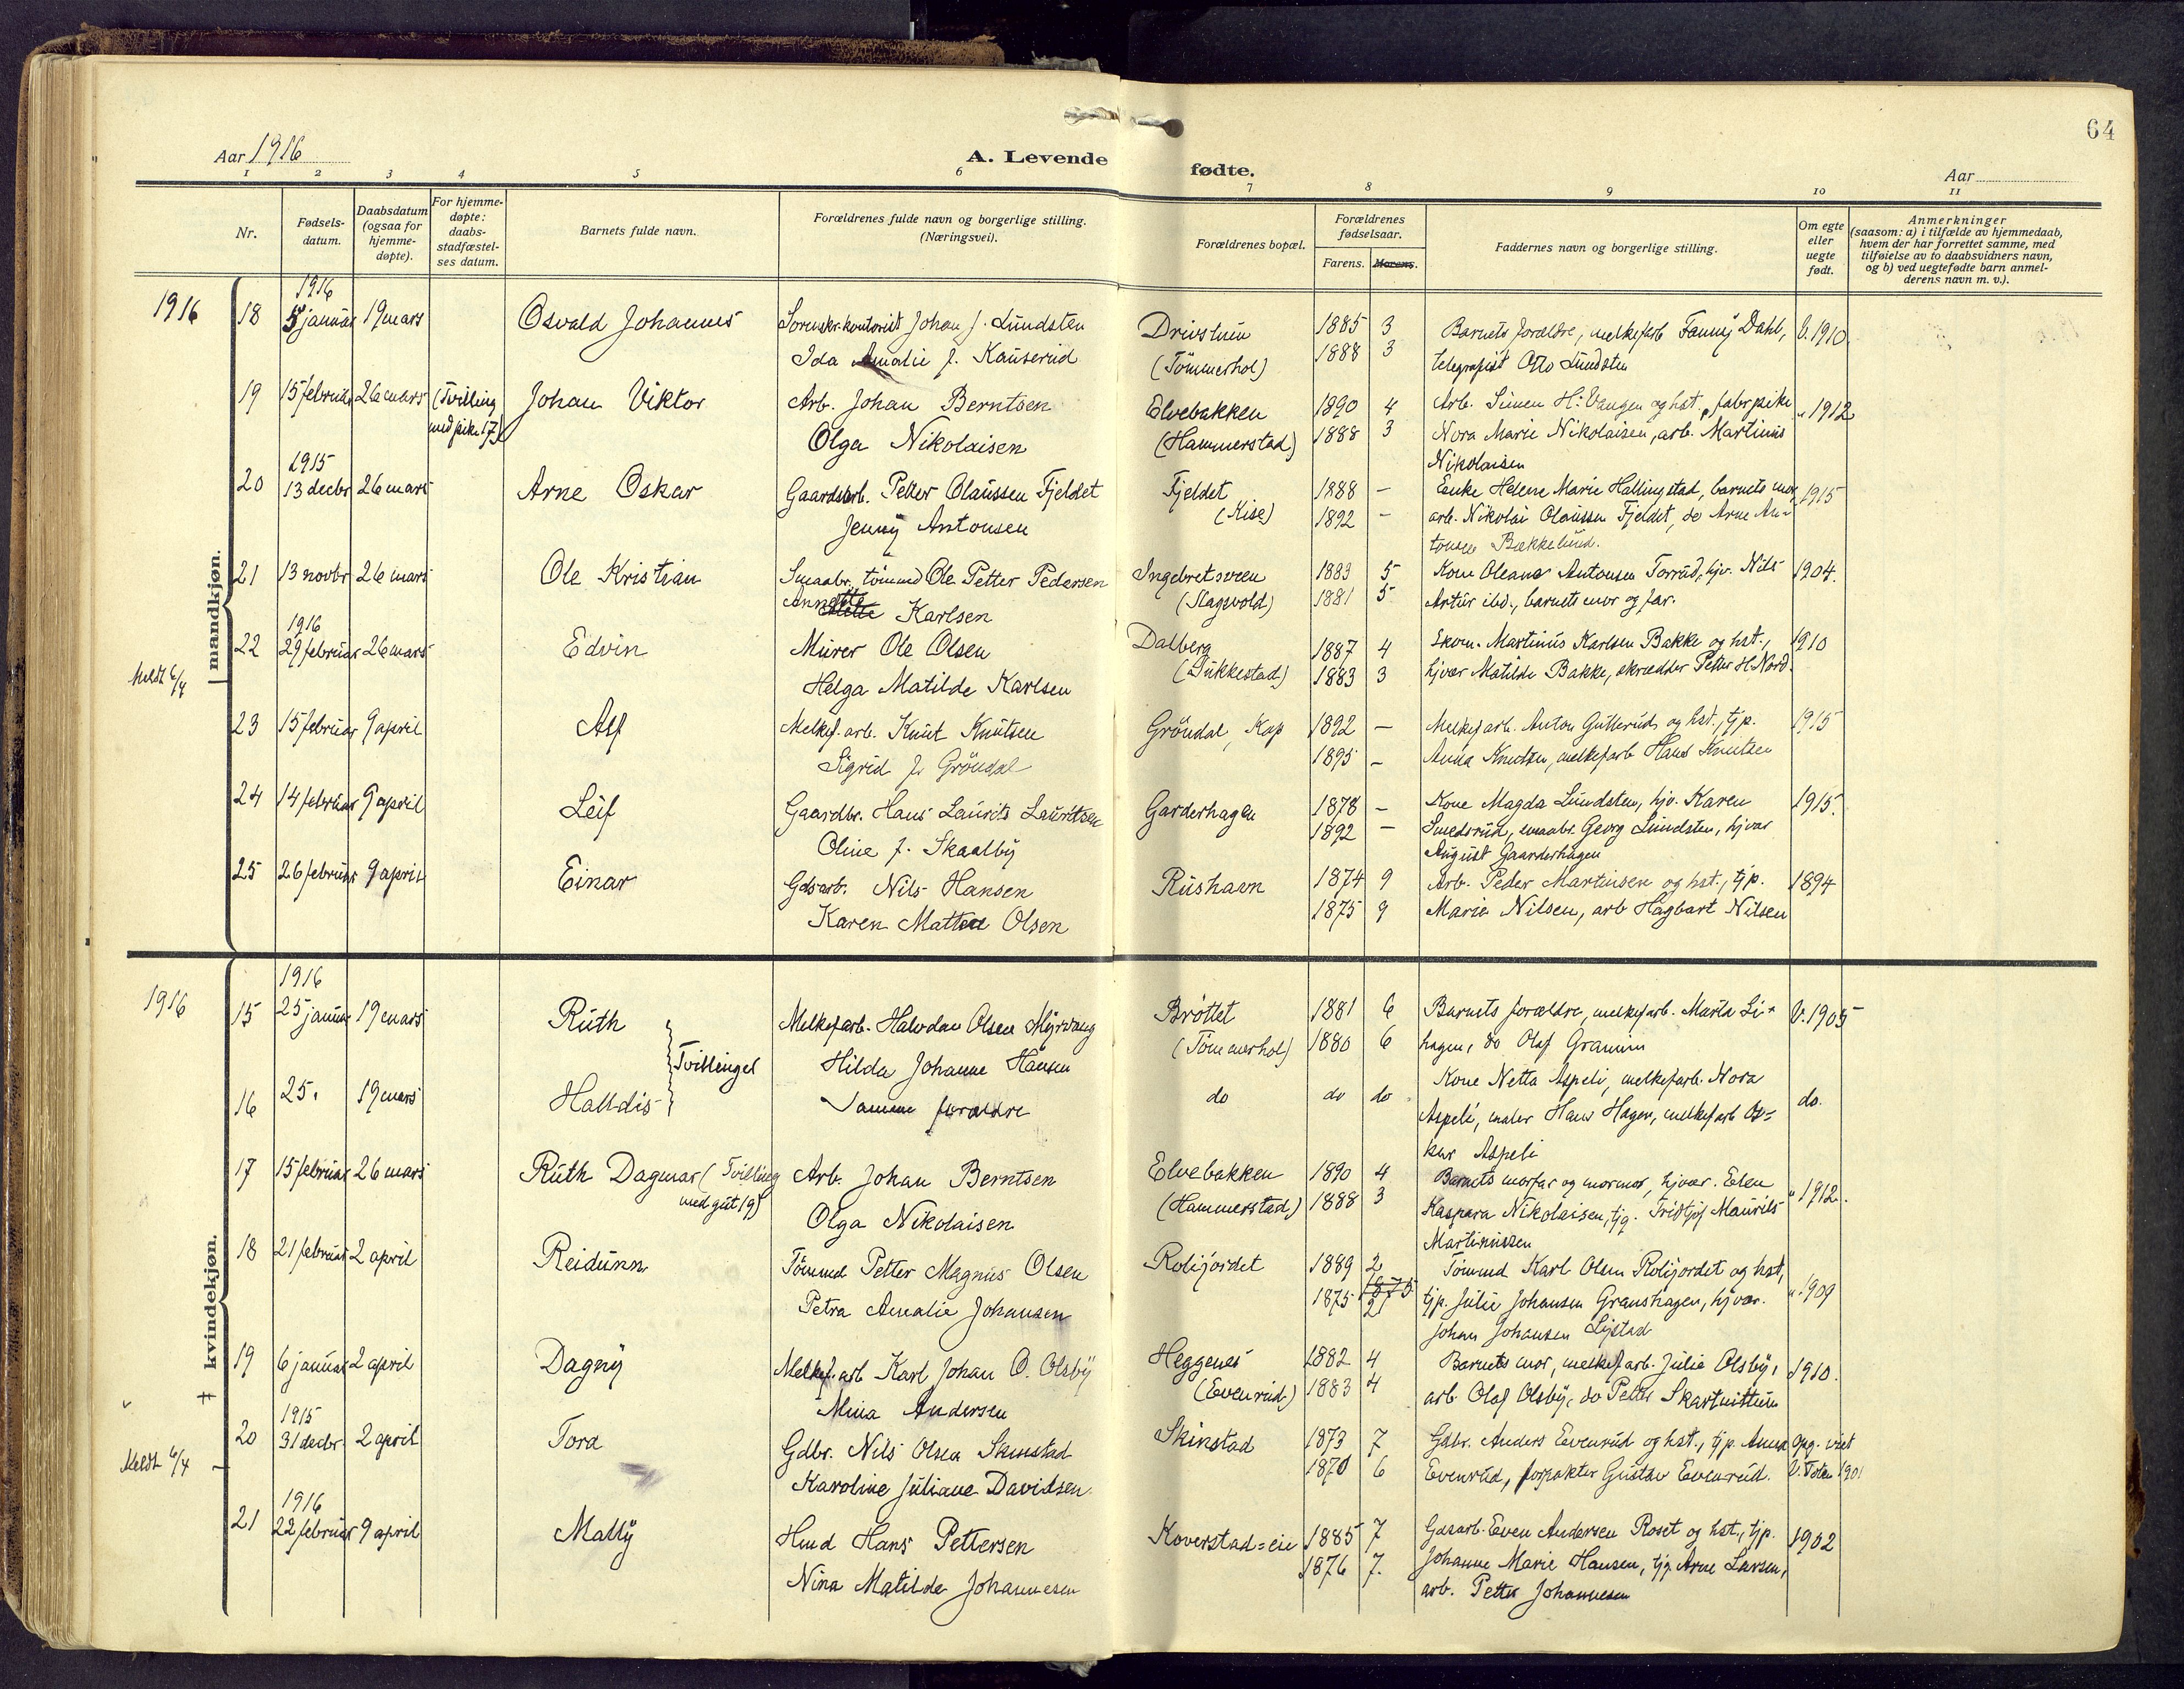 64
Aar 1916
A. Levende fødte.
Aar
1 2 3 4 5 6 7 8 9 10 11
Nr.
Fødselsdatum.
Daabsdatum (ogsaa for hjemmedøpte).
For hjemmedøpte: daabsstadfæstelses datum.
Barnets fulde navn.
Forældrenes fulde navn og borgerlige stilling. (Næringsvei).
Forældrenes bopæl.
Forældrenes fødselsaar.
Farens. Morens.
Faddernes navn og borgerlige stilling.
Om egte eller uegte født.
Anmerkninger
(saasom: a) i tilfælde av hjemmedaab,
hvem der har forrettet samme, med
tilføielse av to daabsvidners navn,
og b) ved uegtefødte barn anmel-
derens navn m. v.).
mandkjøn.
1916
1916
18 5 januar 19 mars Osvald Johannes Sorenskr.kontorist Johan J. Lundsten Drivstuen 1885 3 Barnets forældre, melkefarb Fanny Dahl, b. 1910
Ida Amalie f. Kauserud (Tömmerhol) 1888 3 telegrafist Otto Lundsten
19 15 februar 26 mars (Tvilling Johan Viktor Arb. Johan Berntsen Elvebakken 1890 4 Arb. Simen H. Vangen og hst., fabrpike " 1912
med pike 17) Olga Nikolaisen (Hammerstad) 1888 3 Nora Marie Nikolaisen, arb. Martinus
Nikolaisen
1915
20 13 decbr 26 mars Arne Oskar Gaardsarb. Petter Olaussen Fjeldet Fjeldet 1888 - Enke Helene Marie Hallingstad, barnets mor, 1915
Jenny Antonsen (Kise) 1892 - arb. Nikolai Olaussen Fjeldet, do Arne An-
tonsen Bækkelund.
21 13 novbr 26 mars Ole Kristian Smaabr. tömmd Ole Petter Pedersen Ingebretsveen 1883 5 Kone Oleana Antonsen Torrud, hjv. Nils 1904.
Annette Karlsen (Slagsvold) 1881 5 Artur ibd., barnets mor og far.
1916
22 29 februar 26 mars Edvin Murer Ole Olsen Dalberg 1887 4 Skom. Martinus Karlsen Bakke og hst., 1910
Meldt 6/4 Helga Matilde Karlsen (Sukkestad) 1883 3 hjvær Matilde Bakke, skrædder Petter H. Nord.
23 15 februar 9 april Alf Melkef.arb. Knut Knutsen Gröndal, Kap 1892 - Melkefarb. Anton Gutterud og hst., tjp. 1915
Sigrid f. Gröndal 1895 - Anna Knutsen, melkefarb Hans Knutsen
24 14 februar 9 april Leif Gaardbr. Hans Laurits Lauritsen Garderhagen 1878 - Kone Magda Lundsten, hjv. Karen 1915.
Oline f. Skaalby 1892 - Smedsrud, smaabr. Georg Lundsten, hjvær
August Gaarderhagen
25 26 februar 9 april Einar Gdsarb. Nils Hansen Rushavn 1874 9 Arb. Peder Martinsen og hst., tjp. 1894
Karen Mathea Olsen 1875 9 Marie Nilsen, arb Hagbart Nilsen
kvindekjøn.
1916
1916
15 25 januar 19 mars Ruth Melkefarb. Halvdan Olsen Myrvang Bröttet 1881 6 Barnets forældre, melkefarb. Marta Li- V. 1905
Tvillinger Hilda Johanne Hansen (Tömmerhol) 1880 6 hagen, do Olaf Gramim
16 25. 19 mars Halldis Samme forældre do do do Kone Netta Aspeli, melkefarb. Nora do.
Aspeli, maler Hans Hagen, melkefarb Os-
kar Aspeli
17 15 februar 26 mars Ruth Dagmar (Tvilling Arb. Johan Berntsen Elvebakken 1890 4 Barnets morfar og mormor, hjvær. Elen " 1912.
med gut 19) Olga Nikolaisen (Hammerstad) 1888 3 Kaspara Nikolaisen, tjg. Fridtjof Maurits
Martinussen
18 21 februar 2 april Reidunn Tömmd Petter Magnus Olsen Rolijordet 1889 2 Tömmd Karl Olsen Rolijordet og hst, " 1909
Petra Amalie Johansen 1875 1875 2 tjp. Julie Johansen Granshagen, hjvær.
Johan Johansen Lystad
19 6 januar 2 april Dagny Melkef.arb Karl Johan O. Olsby Heggenes 1882 4 Barnets mor, melkefarb. Julie Olsby, 1910.
† Mina Andersen (Evenrud) 1883 4 arb Olaf Olsby, do Petter Skartuittum
1915
20 31 decbr. 2 april Tora Gdbr. Nils Olsen Skinstad Skinstad 1873 7 Gdbr. Anders Evenrud og hst., tjp. Anna Opg. viet
Meldt 6/4 Karoline Juliane Davidsen 1870 6 Evenrud, forpakter Gustav Evenrud. V. Toten 1901
1916
21 22 februar 9 april Mally Hmd Hans Pettersen Koverstad=eie 1885 7 Gdsarb. Even Andersen Roset og hst., tjp. 1902
Nina Matilde Johannesen 1876 7. Johanne Marie Hansen, tjg. Arne Larsen,
arb. Petter Johannesen